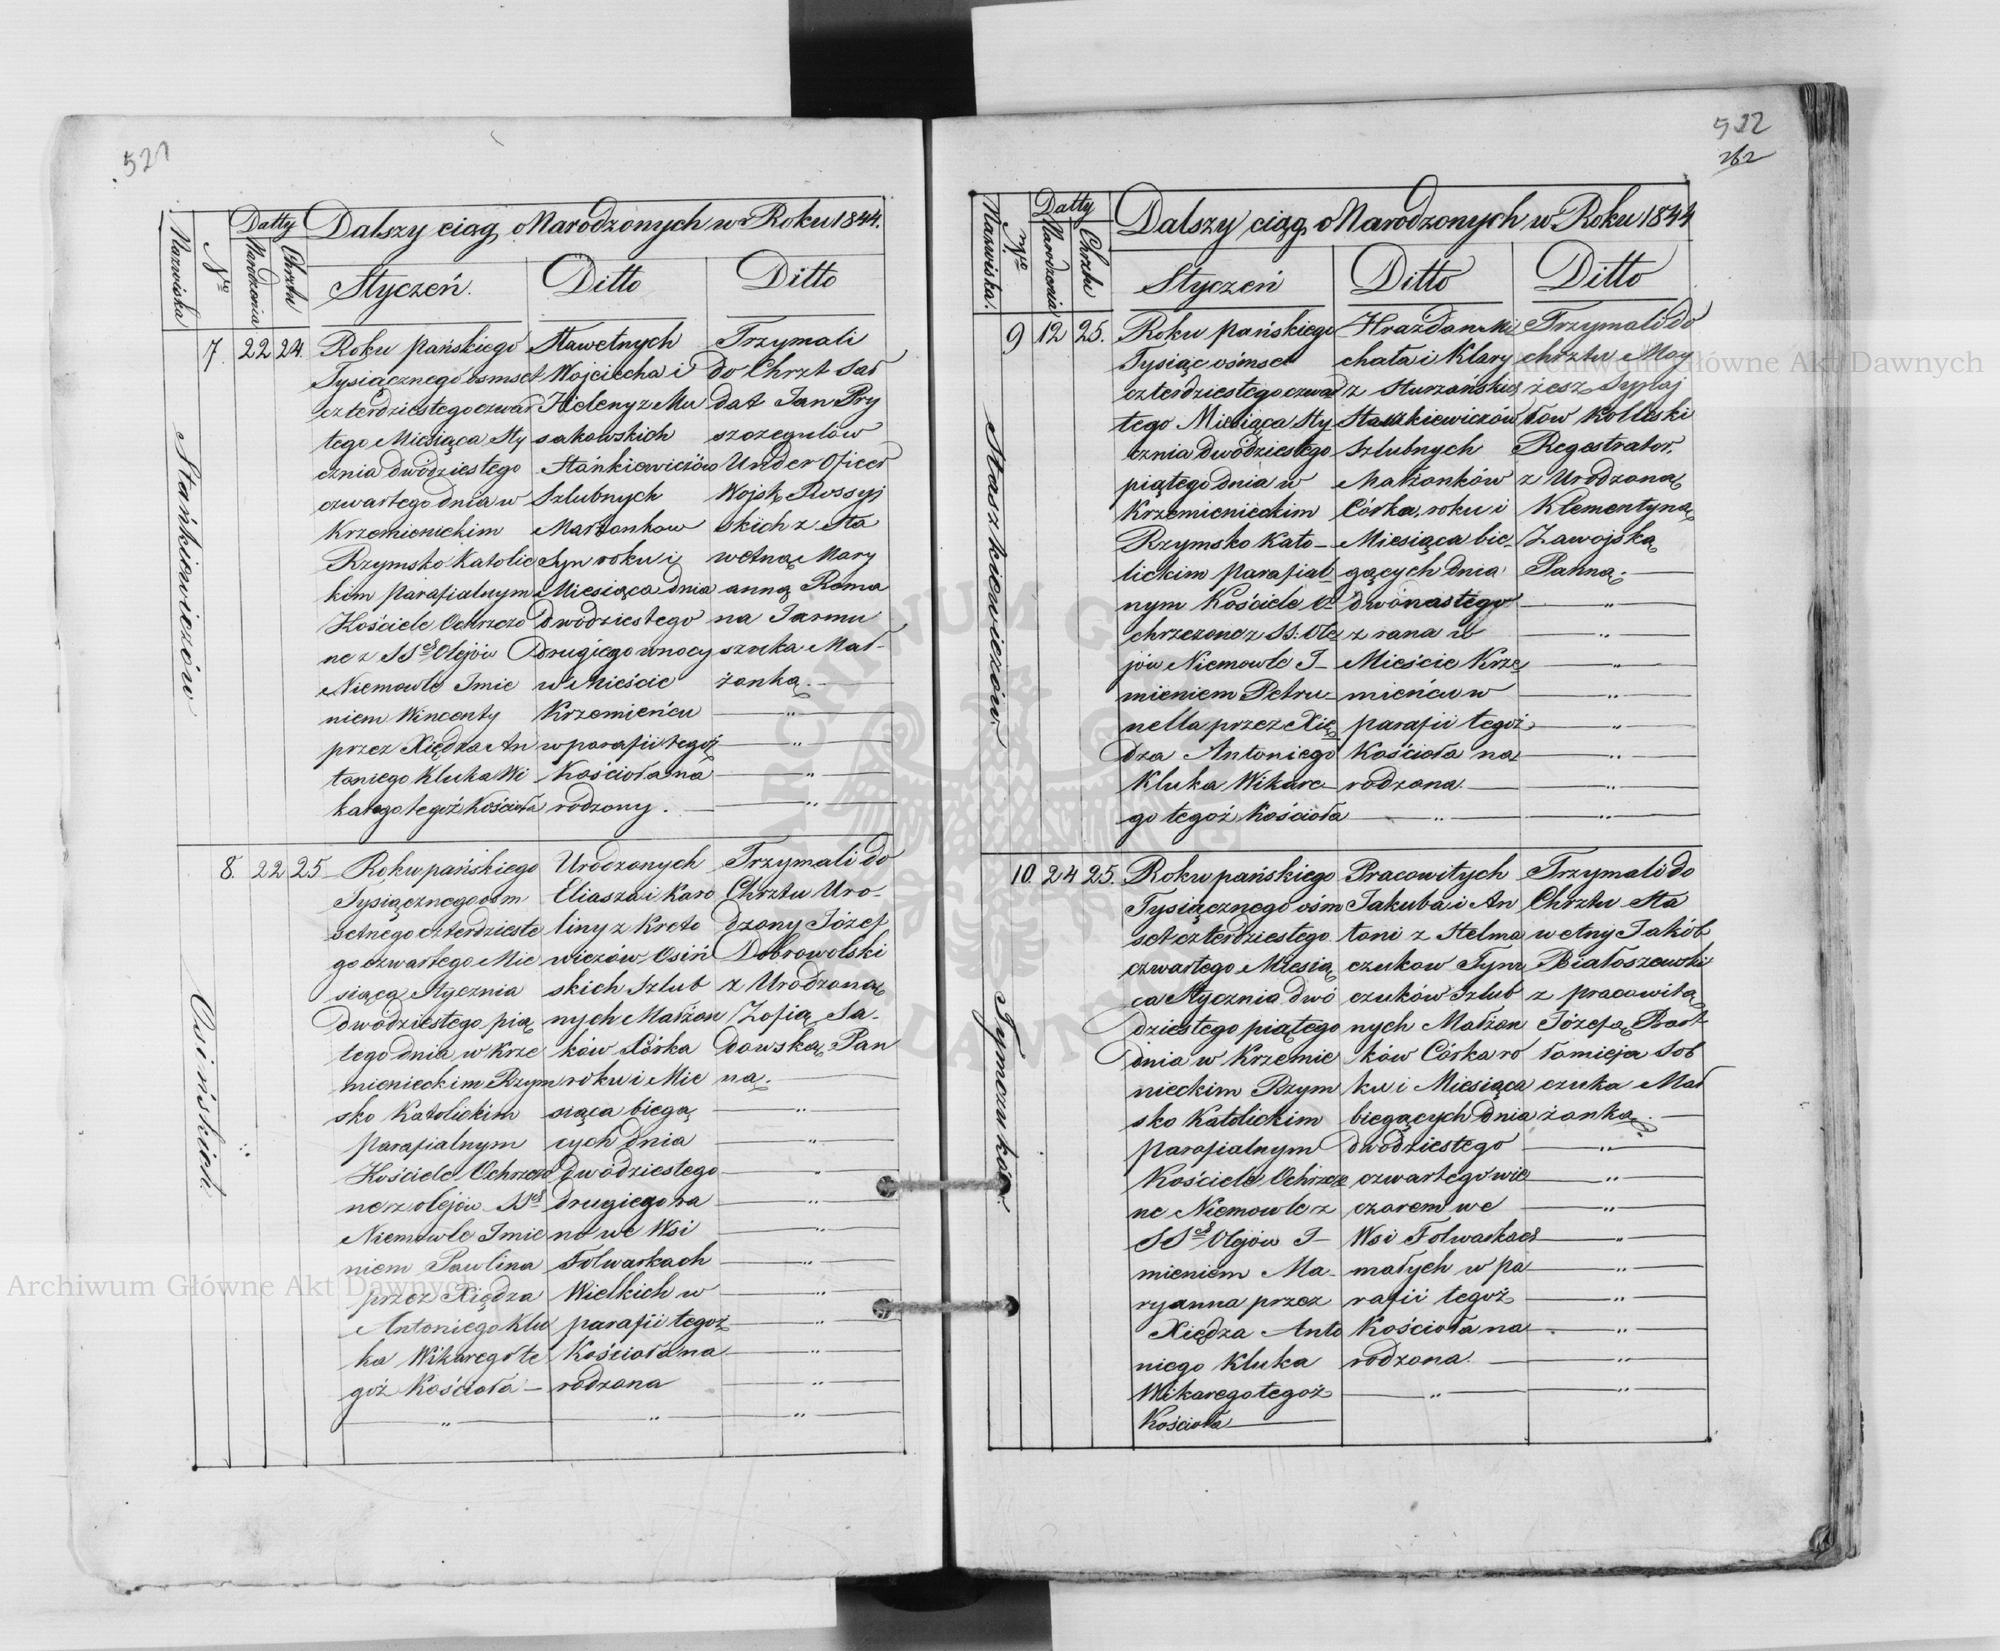 521
Dalszy ciąg Narodzonych w Roku 1844.
Datty
Nazwiska
Nro
Narodzenia
Chrztu
Styczeń.
Ditto
Ditto
Stańkiewiczów
7. 22 24.
Roku pańskiego
Tysiącznego osmset
czterdziestego czwar
tego Miesiąca Sty
cznia dwódziestego
czwartego dnia w
Krzemienickim
Rzymsko Katolic
kim parafialnym
Kościele Ochrzczo
ne z SSch Olejów
Niemowle Imie
niem Wincenty
przez Xiędza An
toniego Kluka Wi
karego tegoż Kościoła
Sławetnych
Wojciecha i
Heleny z Mu
sakowskich
Stańkiewiczów
Szlubnych
Małżonkow
Syn roku i
Miesiąca dnia
Dwódziestego
Drugiego w nocy
w Mieście
Krzemieńcu
w parafii tegoż
Kościoła na
rodzony.
Trzymali
do Chrzt Soł
dat Jan Pry
szczegulow
Under Oficer
Wojsk Rossyj
skich z Sła
wetną Mary
anną Roma
na Jarmu
szuka Mał-
żonką.
Osińskich
8. 22 25
Roku pańskiego
Tysiącznego osm
setnego czterdzieste
go czwartego Mie
siąca Stycznia
dwódziestego pią
tego dnia w Krze
mienieckim Rzym
sko Katolickim
parafialnym
Kościele Ochrzczo
ne z olejów SSch
Niemowle Imie
niem Paulina
przez Xiędza
Antoniego Klu
ka Wikarego te
goż Kościoła
Urodzonych
Eliasza i Karo
liny z Kreto
wiczów Osiń
skich Szlub
nych Małżon
ków Córka
roku i Mie
siąca biegą
cych dnia
Dwódziestego
drugiego ra
no we Wsi
Folwarkach
Wielkich w
parafii tegoż
Kościoła na
rodzona
Trzymali do
Chrztu Uro-
dzony Józef
Dobrowolski
z Urodzoną
Zofią Sa-
dowską Pan
ną.
522
262
Dalszy ciąg Narodzonych w Roku 1844
Datty
Nazwiska.
Nro
Narodzenia
Chrztu
Styczeń
Ditto
Ditto
Staszkiewiczów
9 12 25.
Roku pańskiego
Tysiąc ośmset
czterdziestego czwar
tego Miesiąca Sty
cznia dwódziestego
piątego dnia w
Krzemienieckim
Rzymsko Kato-
lickim parafial
nym Kościele O
chrzczone z SS: Ole
jów Niemowle I-
mieniem Petru-
nella przez Xię
dza Antoniego
Kluka Wikare-
go tegoż Kościoła
Hrażdan Mi
chała i Klary
z Sturzańskich
Staszkiewiczów
Szlubnych
Małżonków
Córka, roku i
Miesiąca bie-
gących dnia
dwónastego
z rana w
Mieście Krze
mieńcu w
parafii tegoż
Kościoła na
rodzona.
Trzymali do
chrztu Moy
żesz Sypaj
łow Kolleski
Regestrator,
z Urodzoną
Klementyną
Zawojską
Panną.
Tymczuków
10. 24 25.
Roku pańskiego
Tysiącznego ośm
set czterdziestego
czwartego Miesią
ca Stycznia dwó
dziestego piątego
dnia w Krzemie
nieckim Rzym
sko Katolickim
parafialnym
Kościele Ochrzczo
ne Niemowle z
SSch Olejów I-
mieniem Ma-
ryanna przez
Xiędza Anto
niego Kluka
Wikarego tegoż
Kościoła
Pracowitych
Jakuba i An
toni z Stelma
czukow Tym
czuków Szlub
nych Małżon
ków Córka ro
ku i Miesiąca
biegących dnia
dwódziestego
czwartego wie
czorem we
Wsi Folwarkach
małych w pa
rafii tegoż
Kościoła na
rodzona.
Trzymali do
Chrztu Sła
wetny Jakób
Białoszewski
z pracowitą
Józefą Bart
łomieja Sob
czuka Mał
żonką.
Archiwum Główne Akt Dawnych
Archiwum Główne Akt Dawnych